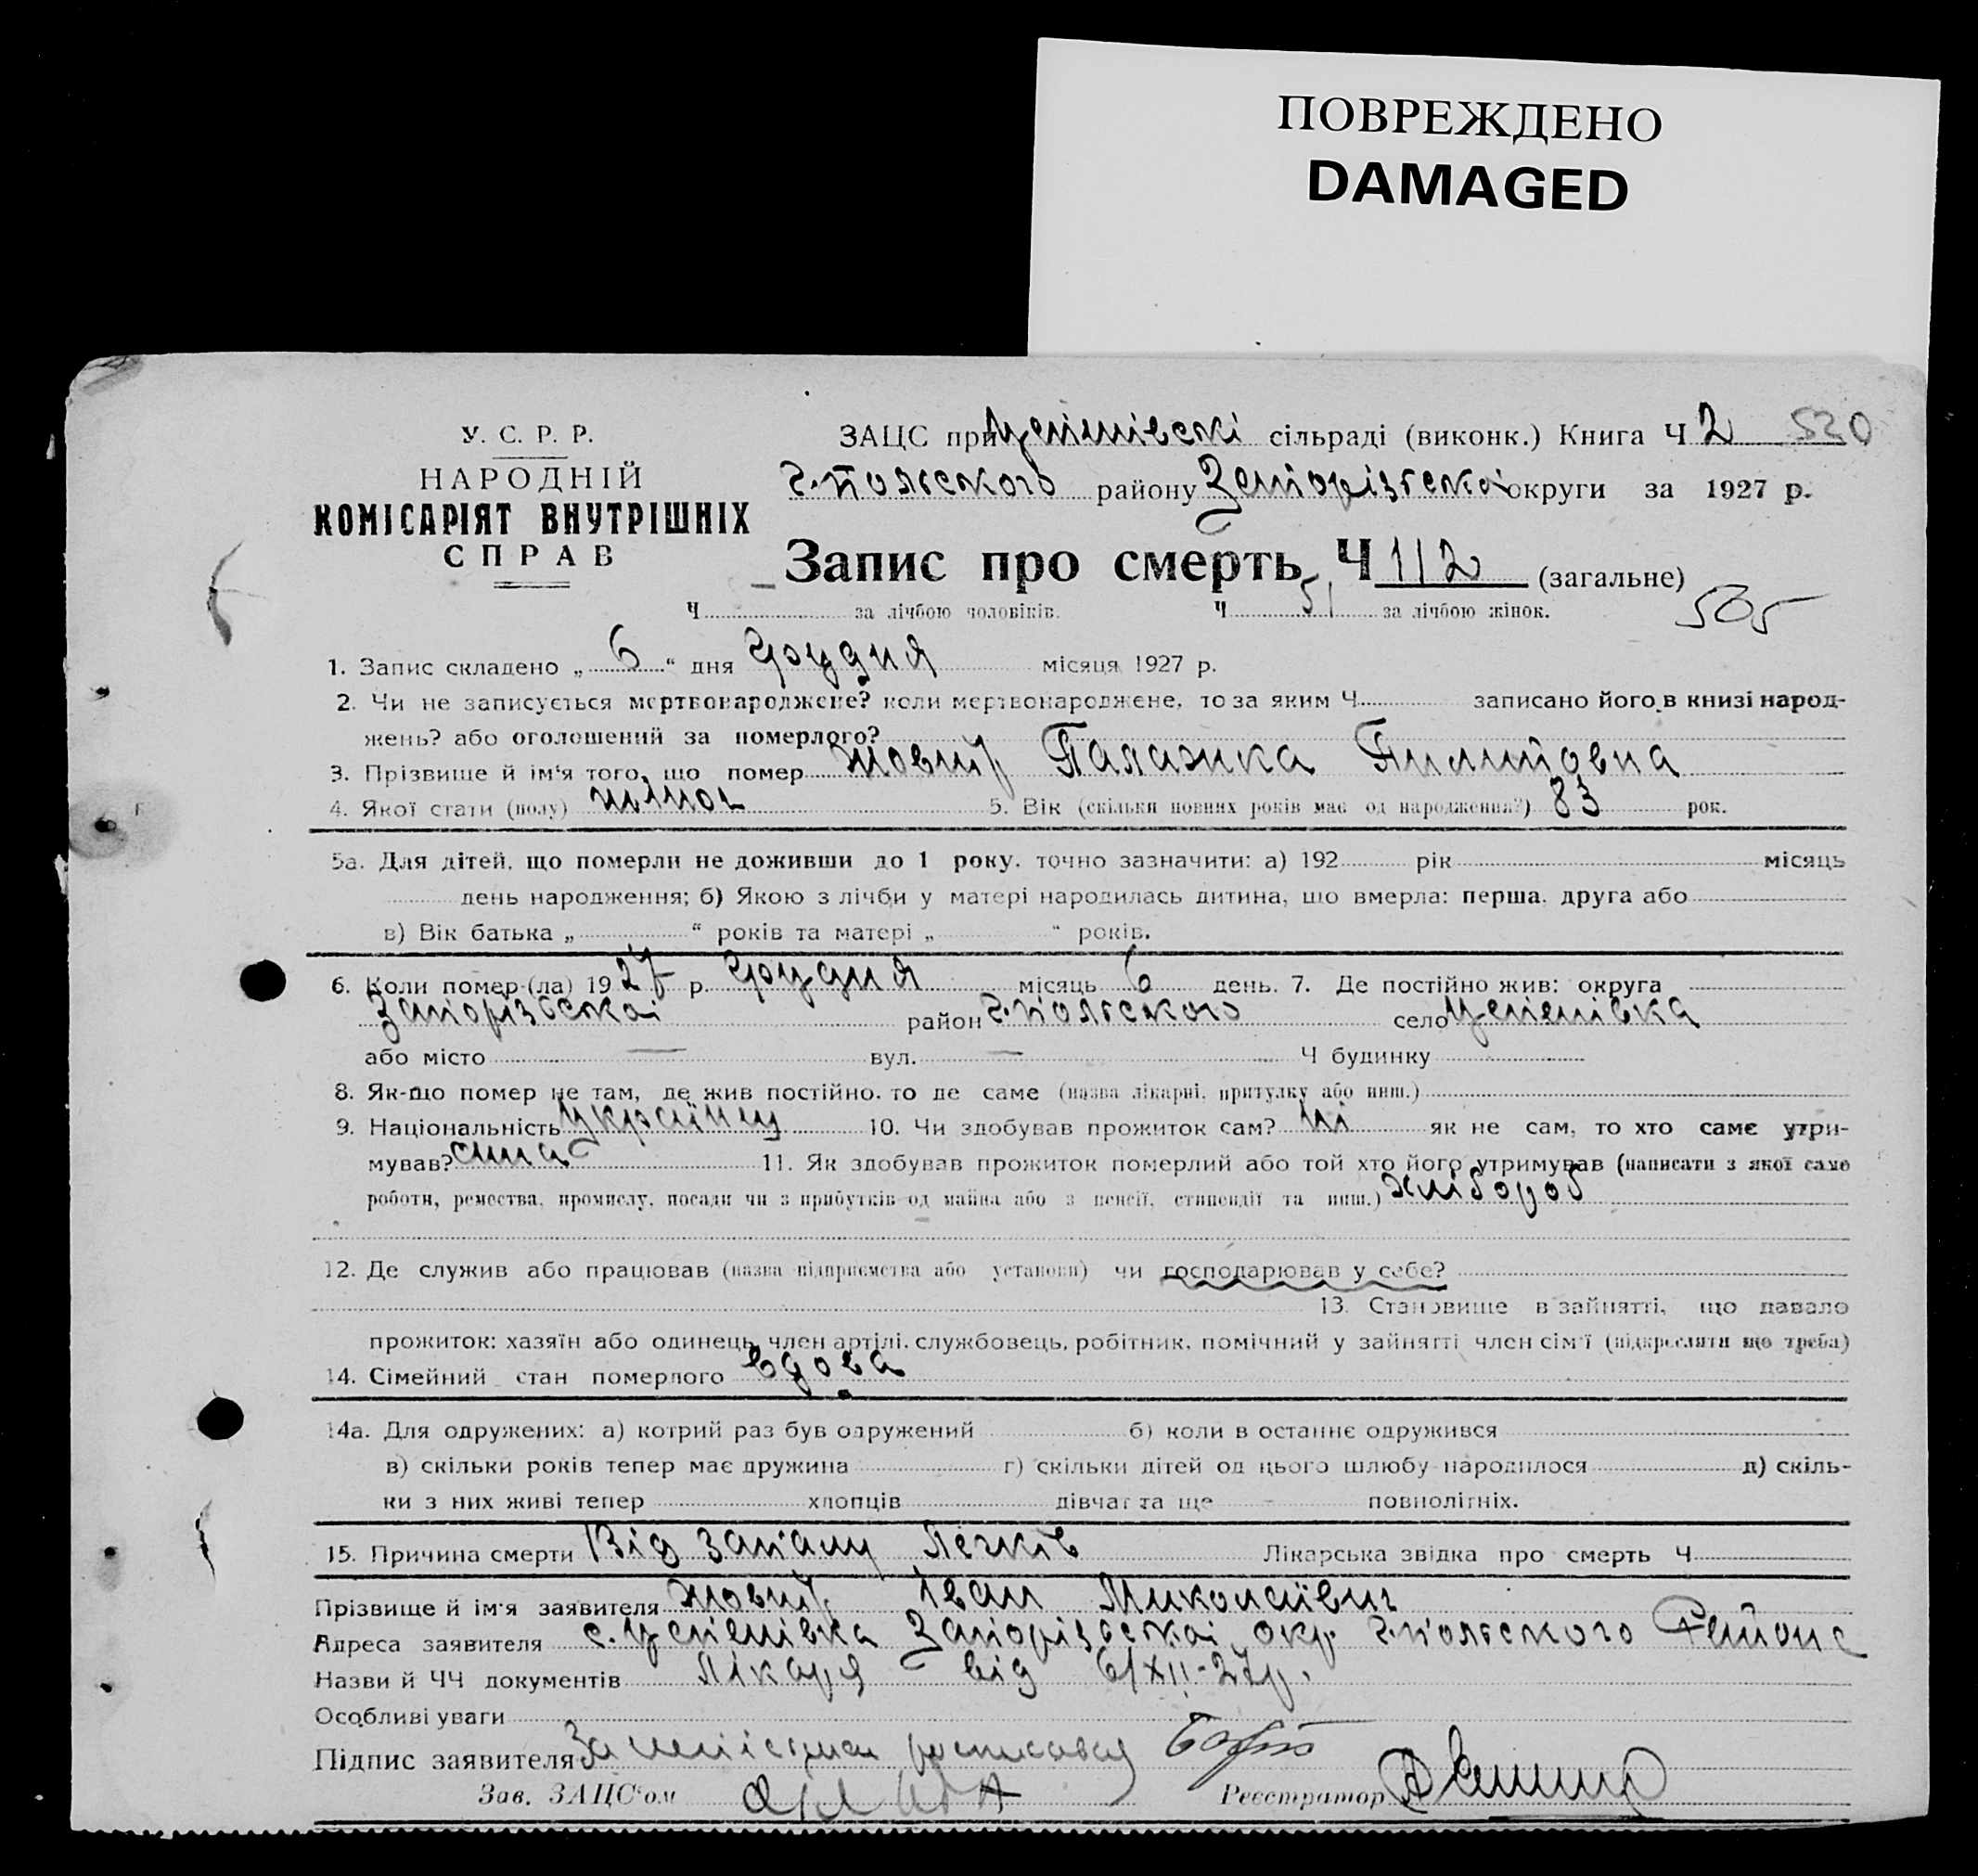 ПОВРЕЖДЕНО
DAMAGED
У. С. Р. Р.
НАРОДНІЙ
КОМІСАРІЯТ ВНУТРІШНІХ
СПРАВ
ЗАЦС при Успенівскі сільраді (виконк.) Книга Ч 2 520
Г.-Польського району Запорізської округи за 1927 р.
Запис про смерть Ч 112 (загальне)
Ч за лічбою чоловіків. Ч 51 за лічбою жінок. 505
1. Запис складено „ 6 “ дня Грудня місяця 1927 р.
2. Чи не записується мертвонароджене? коли мертвонароджене, то за яким Ч записано його в книзі народ-
жень? або оголошений за померлого?
3. Прізвище й ім'я того, що помер Жовнір Палажка Пилиповна
4. Якої стати (полу) жіноч 5. Вік (скільки повних років має од народження?) 83 рок.
5а. Для дітей, що померли не доживши до 1 року, точно зазначити: а) 192 рік місяць
день народження; б) Якою з лічби у матері народилась дитина, що вмерла: перша, друга або
в) Вік батька „ “ років та матері „ “ років.
6. Коли помер (ла) 1927 р. Грудня місяць 6 день. 7. Де постійно жив: округа
Запорізської район Г.-Польського село Успенівка
або місто — вул. — Ч будинку
8. Як-що помер не там, де жив постійно, то де саме (назва лікарні, притулку або инш.)
9. Національність Українц 10. Чи здобував прожиток сам? Ні як не сам, то хто саме утри-
мував? сина 11. Як здобував прожиток померлий або той хто його утримував (написати з якої саме
роботи, ремества, промислу, посади чи з прибутків од майна або з пенсії, стипендії та инш.) хлібороб
12. Де служив або працював (назва підприємства або установи) чи господарював у себе?
13. Становище в зайнятті, що давало
прожиток: хазяїн або одинець, член артілі, службовець, робітник, помічний у зайнятті член сім'ї (підкреслити що треба)
14. Сімейний стан померлого вдова
14а. Для одружених: а) котрий раз був одружений б) коли в останнє одружився
в) скільки років тепер має дружина г) скільки дітей од цього шлюбу народилося д) скіль-
ки з них живі тепер хлопців дівчат та ще повнолітніх.
15. Причина смерти Від запалу легків Лікарська звідка про смерть Ч
Прізвище й ім'я заявителя Жовнір Іван Миколаївич
Адреса заявителя с. Успенівка Запорізської окр. Г.-Польського Району
Назви й ЧЧ документів Лікаря від 6/XII-27р.
Особливі уваги
Підпис заявителя За
Зав. ЗАЦС'ом Реєстратор